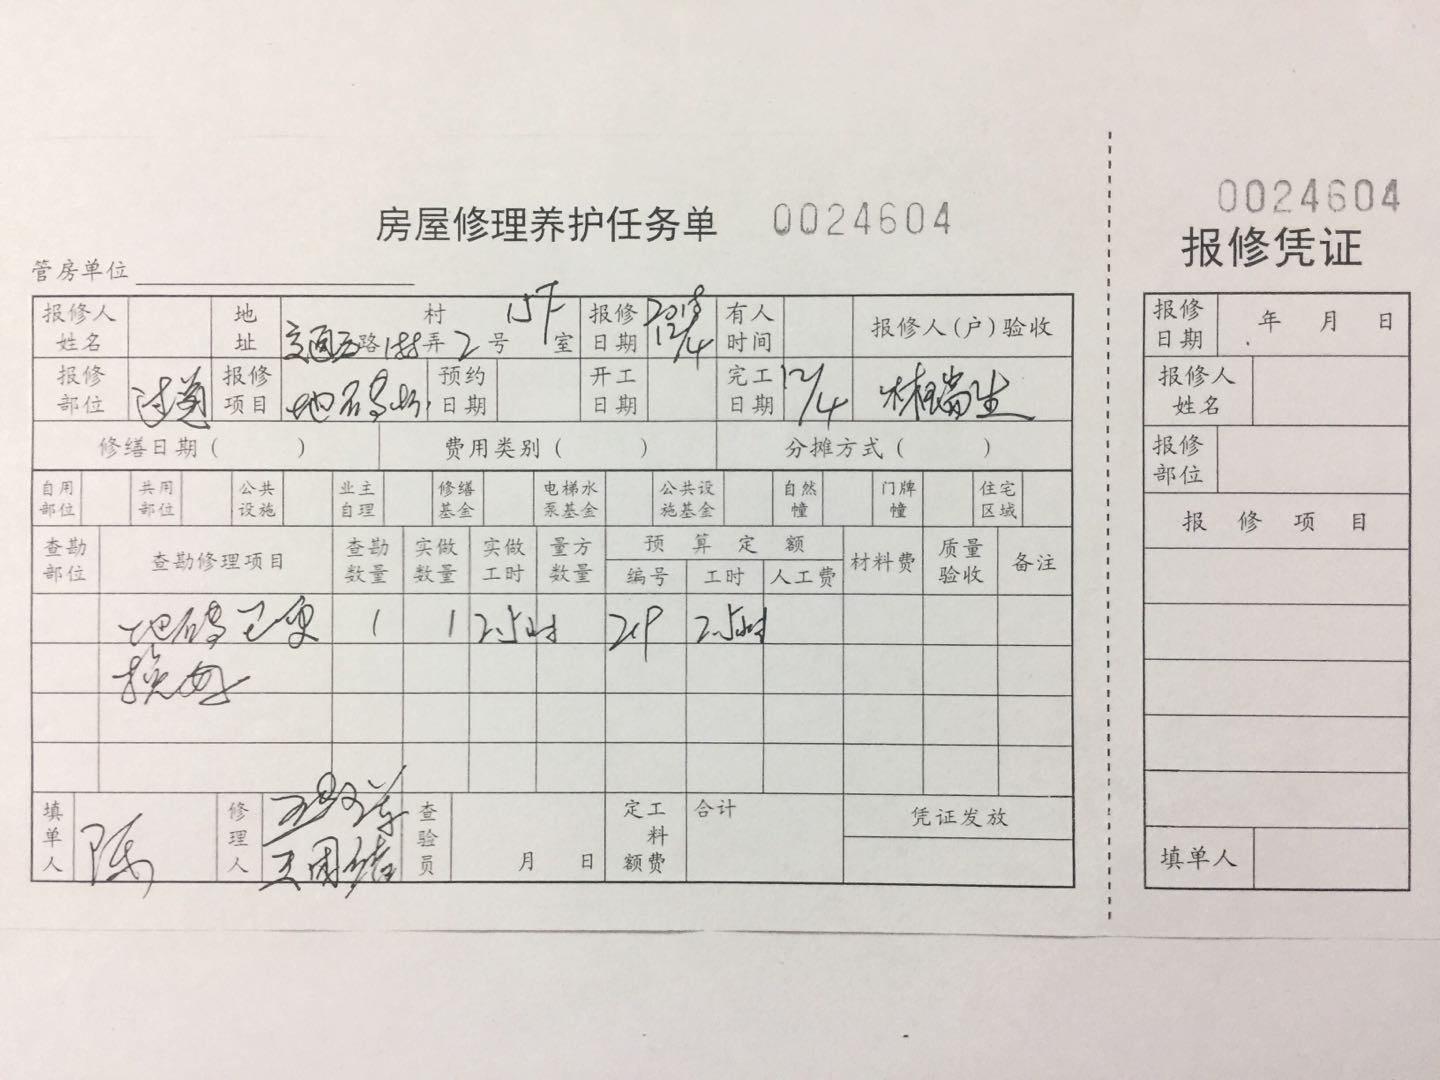 0024604
房屋修理养护任务单 0024604
报修凭证
管房单位
报修人姓名 地址 交通西路188弄2号 村 15F 室 报修日期 2018 12/4 有人时间 报修人(户)验收
报修部位 过道 报修项目 地砖 预约日期 开工日期 完工日期 12/4 林瑞生
修缮日期( ) 费用类别( ) 分摊方式( )
自用部位 共用部位 公共设施 业主自理 修缮基金 电梯水泵基金 公共设施基金 自然幢 门牌幢 住宅区域
查勘部位 查勘修理项目 查勘数量 实做数量 实做工时 量方数量 预算定额 材料费 质量验收 备注
编号 工时 人工费
地砖已更 1 1 2.5时 219 2.5时
换好
填单人 陈 修理人 查验员 月 日 定工料额费 合计 凭证发放
报修日期 年 月 日
报修人姓名
报修部位
报修项目
填单人